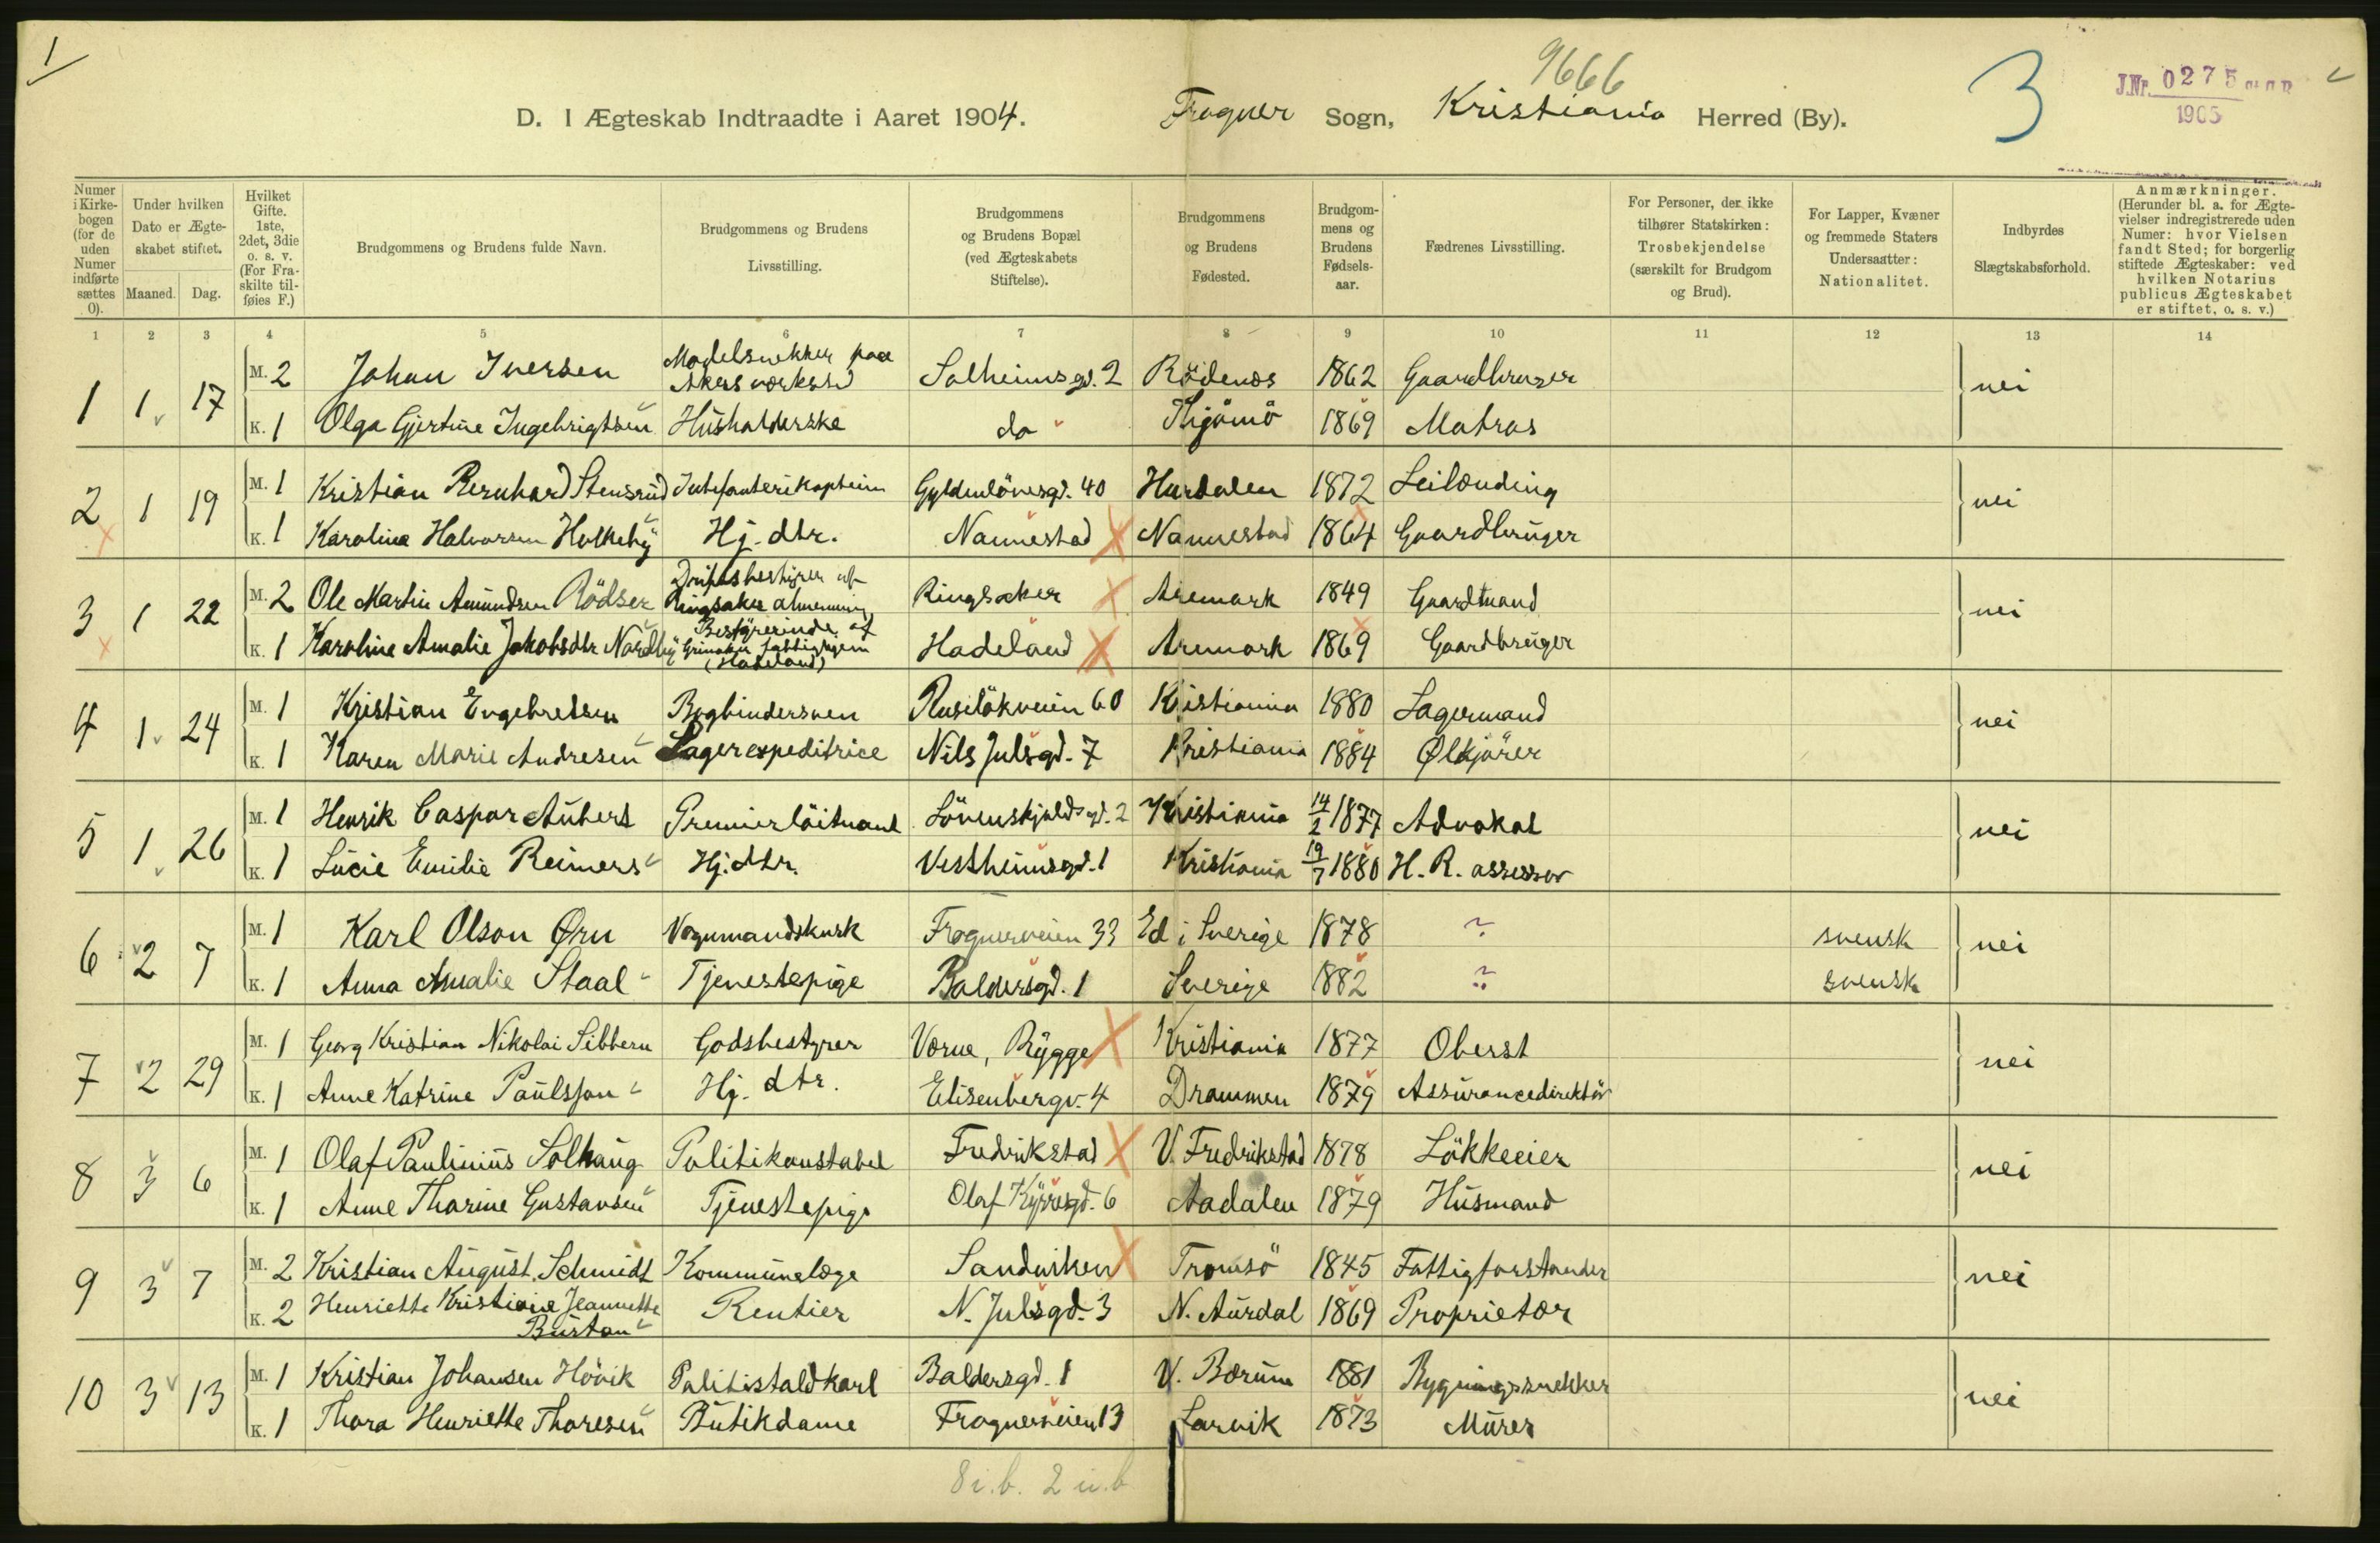 1
9666
3
J.Nr. 0275
1905
D. I Ægteskab Indtraadte i Aaret 1904. Frogner Sogn, Kristiania Herred (By).
Numer i Kirkebogen (for de uden Numer indførte sættes 0).
Under hvilken Dato er Ægteskabet stiftet.
Maaned. Dag.
Hvilket Gifte. 1ste, 2det, 3die o. s. v. (For Fraskilte tilføies F.)
Brudgommens og Brudens fulde Navn.
Brudgommens og Brudens Livsstilling.
Brudgommens og Brudens Bopæl (ved Ægteskabets Stiftelse).
Brudgommens og Brudens Fødested.
Brudgommens og Brudens Fødselsaar.
Fædrenes Livsstilling.
For Personer, der ikke tilhører Statskirken: Trosbekjendelse (særskilt for Brudgom og Brud).
For Lapper, Kvæner og fremmede Staters Undersaatter: Nationalitet.
Indbyrdes Slægtskabsforhold.
Anmærkninger. (Herunder bl. a. for Ægtevielser indregistrerede uden Numer: hvor Vielsen fandt Sted; for borgerlig stiftede Ægteskaber: ved hvilken Notarius publicus Ægteskabet er stiftet, o. s. v.)
1 2 3 4 5 6 7 8 9 10 11 12 13 14
1 1 17 M. 2 Johan Iversen Modelsnekker paa Akers værksted Solheimsgd. 2 Rödenes 1862 Gaardbruger nei
K. 1 Olga Gjertine Ingebrigtsen Husholderske do Thjömö 1869 Matros
2 1 19 M. 1 Kristian Bernhard Stensrud Gyldenlövesgd. 40 Hurdalen 1872 Leilænding nei
K. 1 Karoline Halvorsen Holkeby Hj. dtr. Nannestad Nannestad 1864 Gaardbruger
3 1 22 M. 2 Ole Martin Amundsen Rödser Driftsbestyrer af Ringsaker almenning Ringsaker Aremark 1849 Gaardmand nei
K. 1 Karoline Amalie Jakobsdtr Nordby Bestyrerinde af Grimaker fattiggaard (Hadeland) Hadeland Aremark 1869 Gaardbruger
4 1 24 M. 1 Kristian Engebretsen Bogbindersven Ruselökveien 60 Kristiania 1880 Lagermand nei
K. 1 Karen Marie Andresen Lagerexpeditrice Nils Julsgd. 7 Kristiania 1884 Ølkjörer
5 1 26 M. 1 Henrik Caspar Aubert Premierløitnant Lövenskjoldsgd. 2 Kristiania 14/2 1877 Advokat nei
K. 1 Lucie Emilie Reimers Hj. dtr. Vestheimsgd. 1 Kristiania 19/7 1880 H. R. assessor
6 2 7 M. 1 Karl Olson Ørn Vognmandskusk Frognerveien 33 Ed i Sverige 1878 ? svensk nei
K. 1 Anna Amalie Staal Tjenestepige Baldersgd. 1 Sverige 1882 ? svensk
7 2 29 M. 1 Georg Kristian Nikolai Sibbern Godsbestyrer Værne, Rygge Kristiania 1877 Oberst nei
K. 1 Anne Katrine Paulsson Hj. dtr. Elisenbergv. 4 Drammen 1879 Assurancedirektör
8 3 6 M. 1 Olaf Paulinius Solhaug Politikonstabel Fredrikstad V. Fredrikstad 1878 Lökkeeier nei
K. 1 Anne Tharine Gustavsen Tjenestepige Olaf Kyrresgd. 6 Aadalen 1879 Husmand
9 3 7 M. 2 Kristian August Schmidt Kommunelæge Sandviken Tromsö 1845 Fattigforstander nei
K. 2 Henriette Kristiane Jeannette Burtan Rentier N. Julsgd. 3 N. Aurdal 1869 Proprietær
10 3 13 M. 1 Kristian Johansen Hövik Politistaldkarl Baldersgd. 1 V. Bærum 1881 Bygningssnekker nei
K. 1 Thora Henriette Thoresen Butikdame Frognerveien 13 Larvik 1873 Murer
8 i.b. 2 u.b.